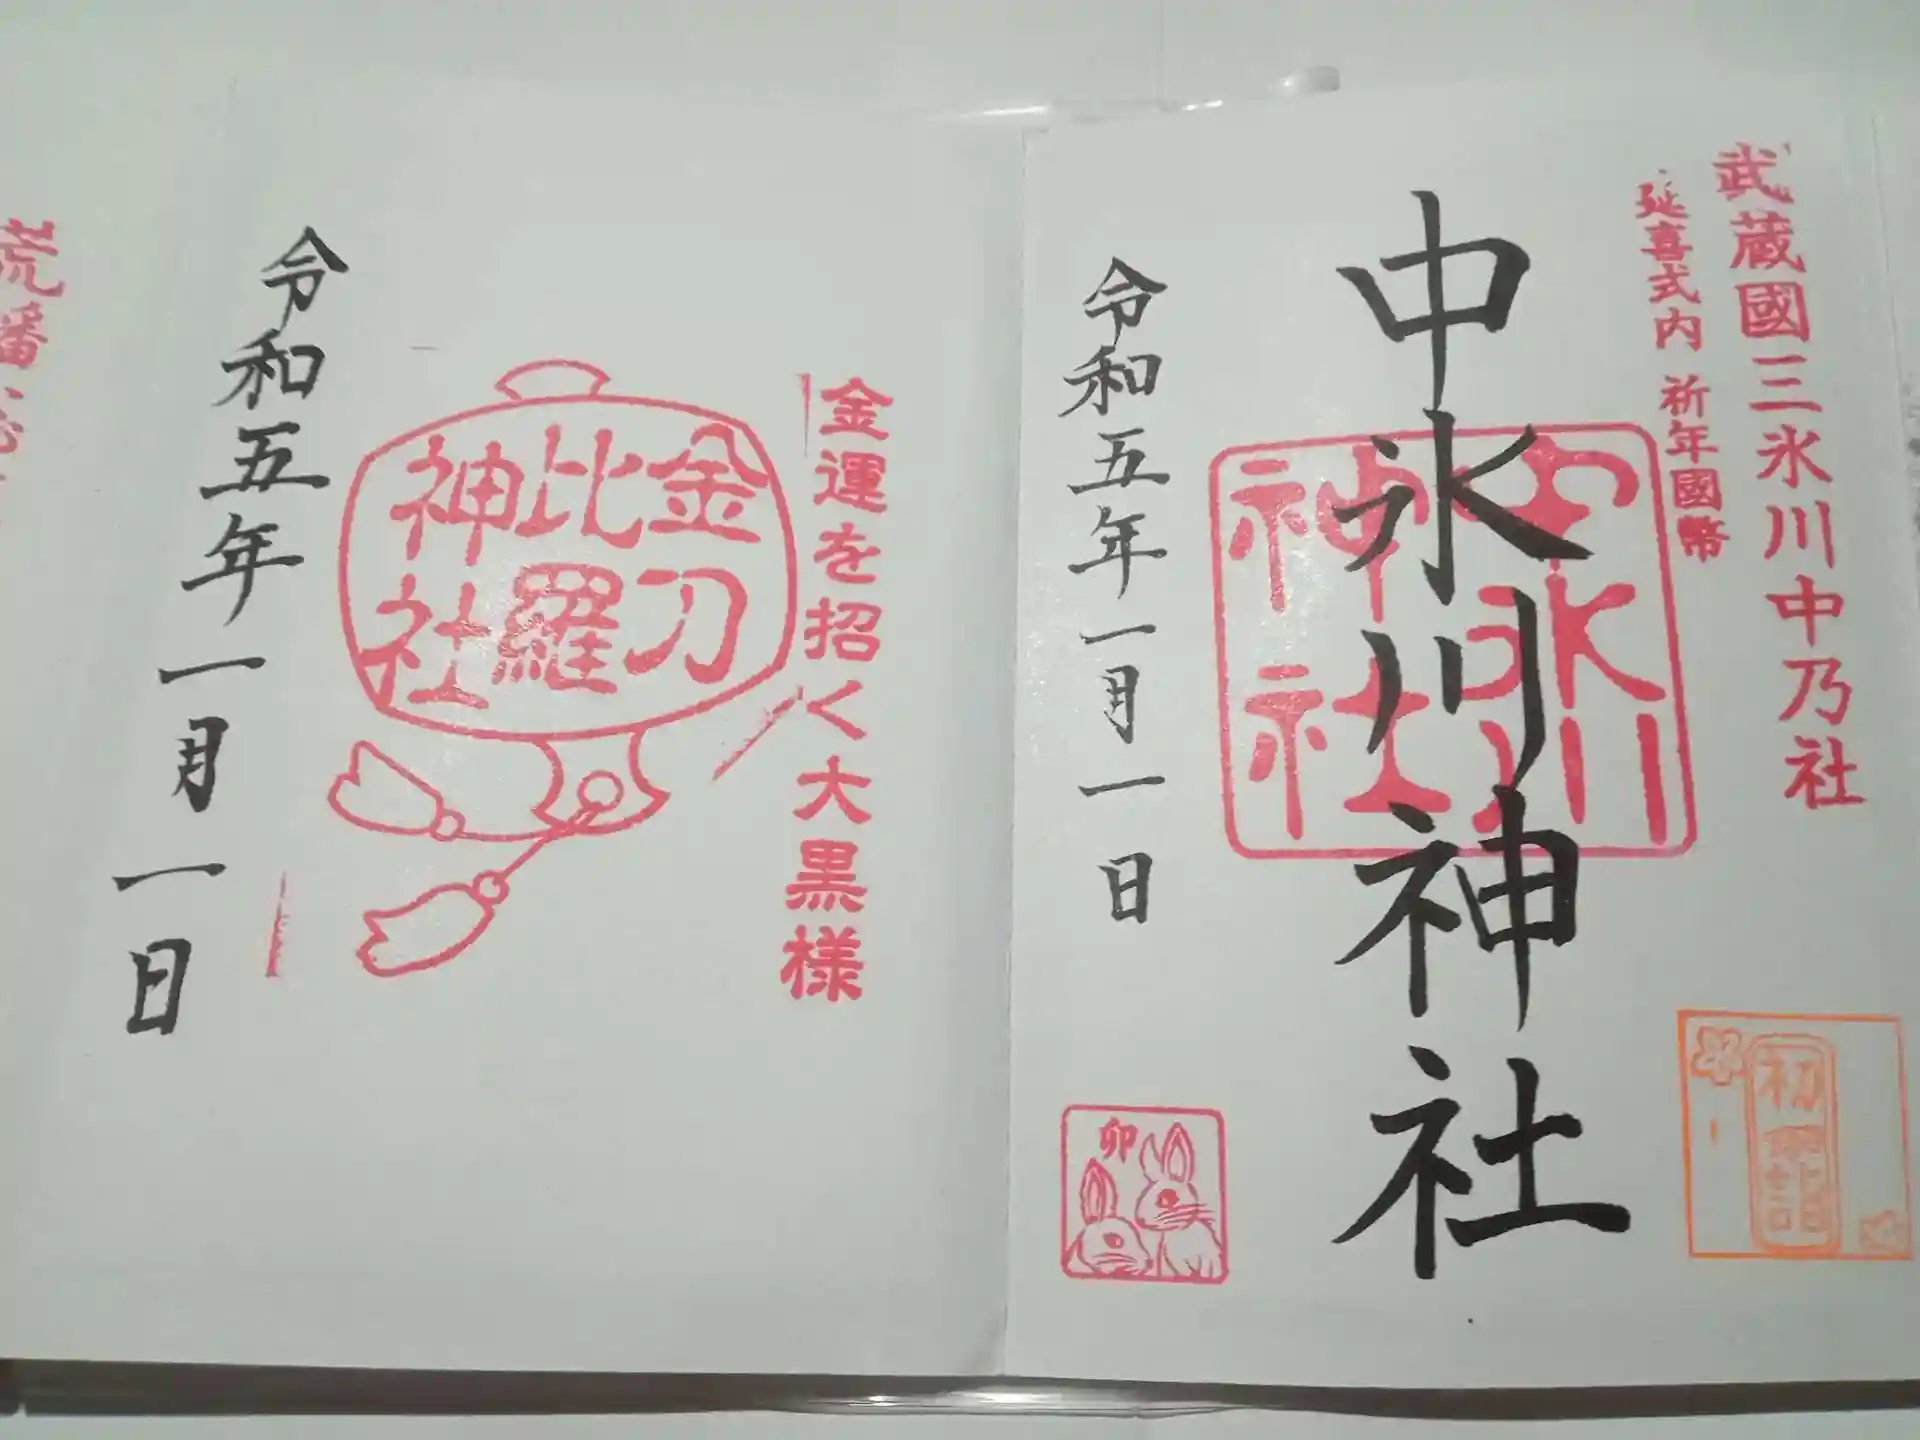 武蔵國三氷川中乃社
延喜式内 祈年國幣
中氷川神社
中氷川
神社
初詣
令和五年一月一日
卯
金運を招く大黒様
金刀
比羅
神社
令和五年一月一日
荒幡